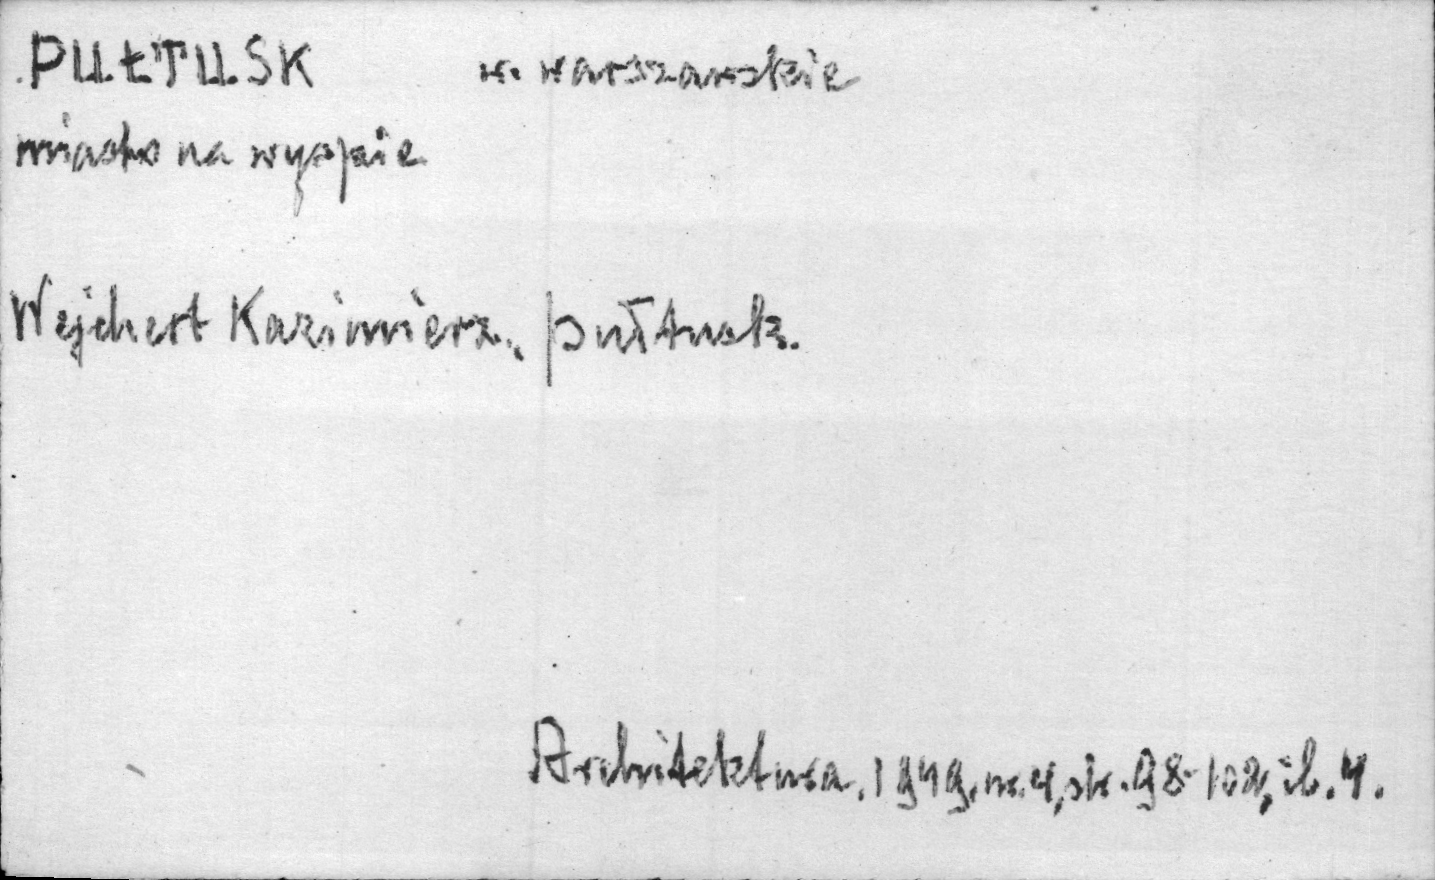 PUŁTUSK w. warszawskie
miasto na wyspie
Wejchert Kazimierz., Pułtusk.
Architektura. 1949. nr. 4, str. 98-102, il. 4.